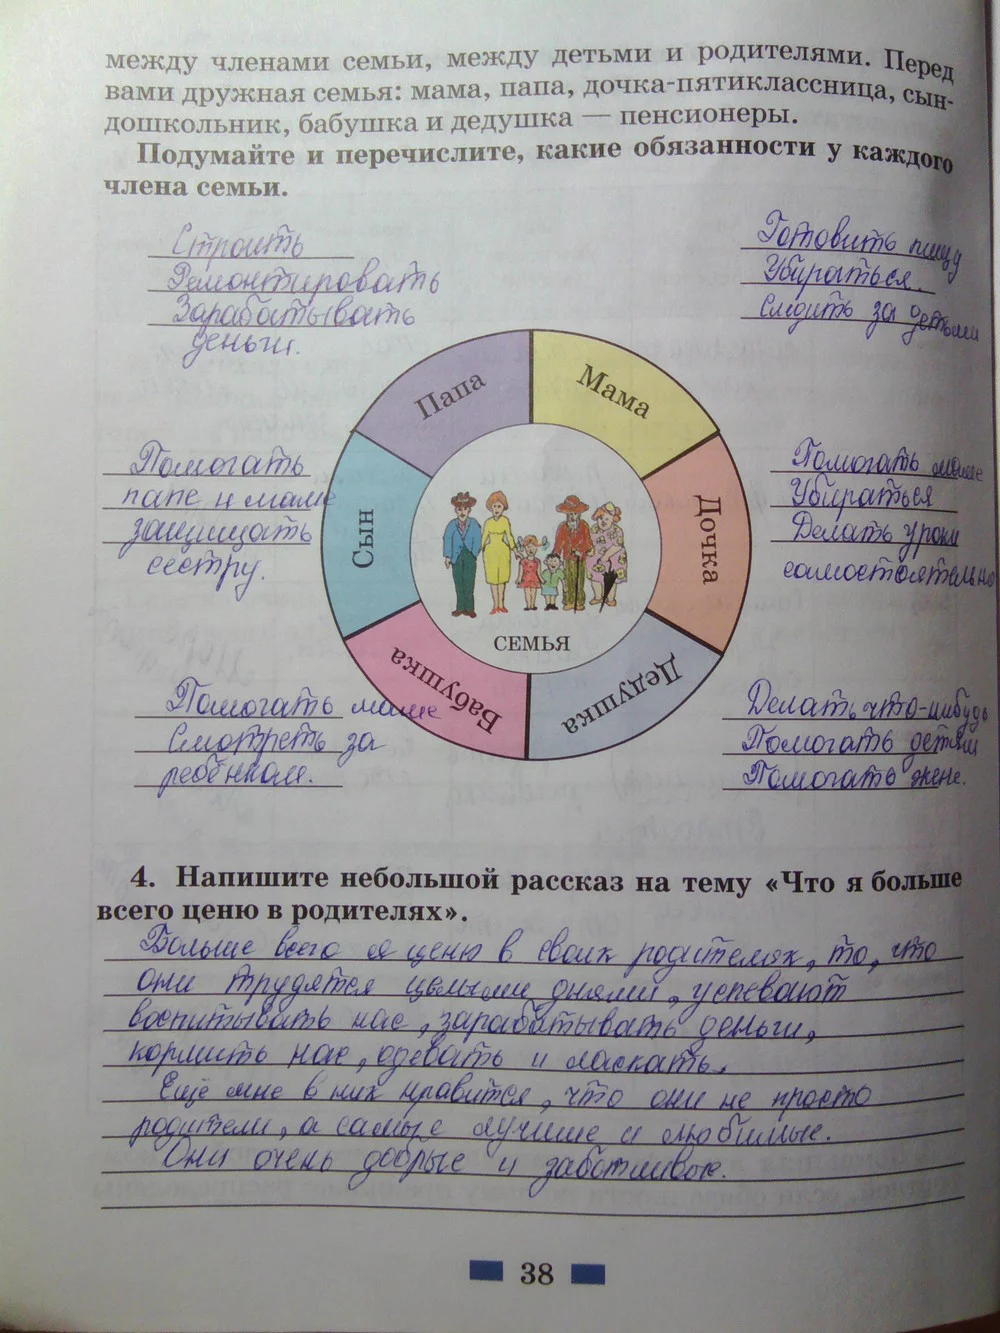 между членами семьи, между детьми и родителями. Перед
вами дружная семья: мама, папа, дочка-пятиклассница, сын-
дошкольник, бабушка и дедушка — пенсионеры.
Подумайте и перечислите, какие обязанности у каждого
члена семьи.
Строить
Ремонтировать
Зарабатывать
деньги.
Готовить пищу
Убираться.
Следить за детьми
Папа
Мама
Помогать
папе и маме
защищать
сестру.
Сын
Дочка
Помогать маме
Убираться
Делать уроки
самостоятельно
СЕМЬЯ
Бабушка
Дедушка
Помогать маме
Смотреть за
ребёнком.
Делать что-нибудь
Помогать детям
Помогать жене.
4. Напишите небольшой рассказ на тему «Что я больше
всего ценю в родителях».
Больше всего я ценю в своих родителях, то, что
они трудятся целыми днями, успевают
воспитывать нас, зарабатывать деньги,
кормить нас, одевать и ласкать.
Ещё мне в них нравится, что они не просто
родители, а самые лучшие и любимые.
Они очень добрые и заботливые.
38